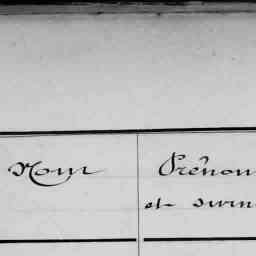 Nom
Prénom
et surn